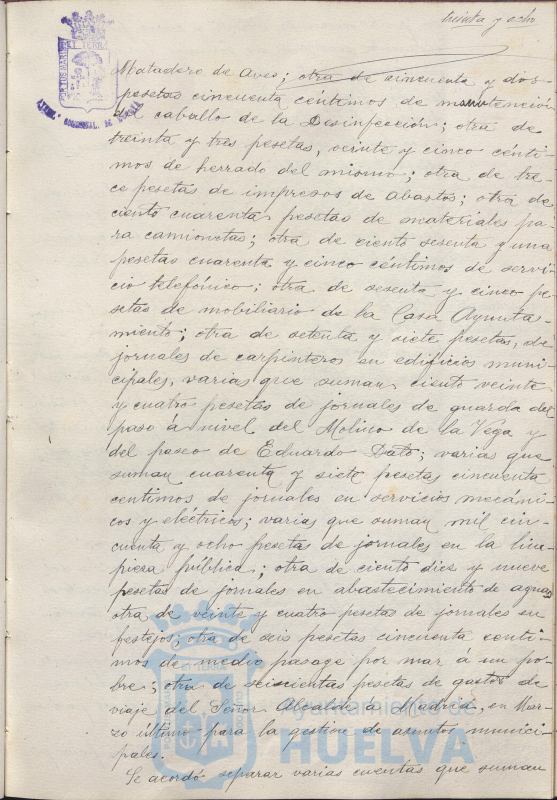 treinta y ocho
Matadero de Aves; otra de cincuenta y dos
pesetas cincuenta céntimos de manutención
del caballo de la Desinfección; otra de
treinta y tres pesetas, veinte y cinco cénti-
mos de herrado del mismo; otra de tre-
ce pesetas de impresos de abastos; otra de
ciento cuarenta pesetas de materiales pa-
ra camionetas; otra de ciento sesenta y una
pesetas cuarenta y cinco céntimos de servi-
cio telefónico; otra de sesenta y cinco pe
setas de mobiliario de la Casa Ayunta-
miento; otra de setenta y siete pesetas, de
jornales de carpinteros en edificios muni-
cipales, varias que suman ciento veinte
y cuatro pesetas de jornales de guarda del
paso á nivel del Molino de la Vega y
del paseo de Eduardo Dato; varias que
suman cuarenta y siete pesetas cincuenta
centimos de jornales en servicios mecáni-
cos y eléctricos; varias que suman mil cin-
cuenta y ocho pesetas de jornales en la lim-
pieza pública,; otra de ciento diez y nueve
pesetas de jornales en abastecimiento de aguas
otra de veinte y cuatro pesetas de jornales en
festejos; otra de seis pesetas cincuenta centi-
mos de medio pasage por mar á un po-
bre; otra de seiscientas pesetas de gastos de
viaje del Señor Alcalde a Madrid, en Mar-
zo último para la gestión de asuntos munici-
pales.
Se acordó separar varias cuentas que suman
Ayuntamiento de
HUELVA